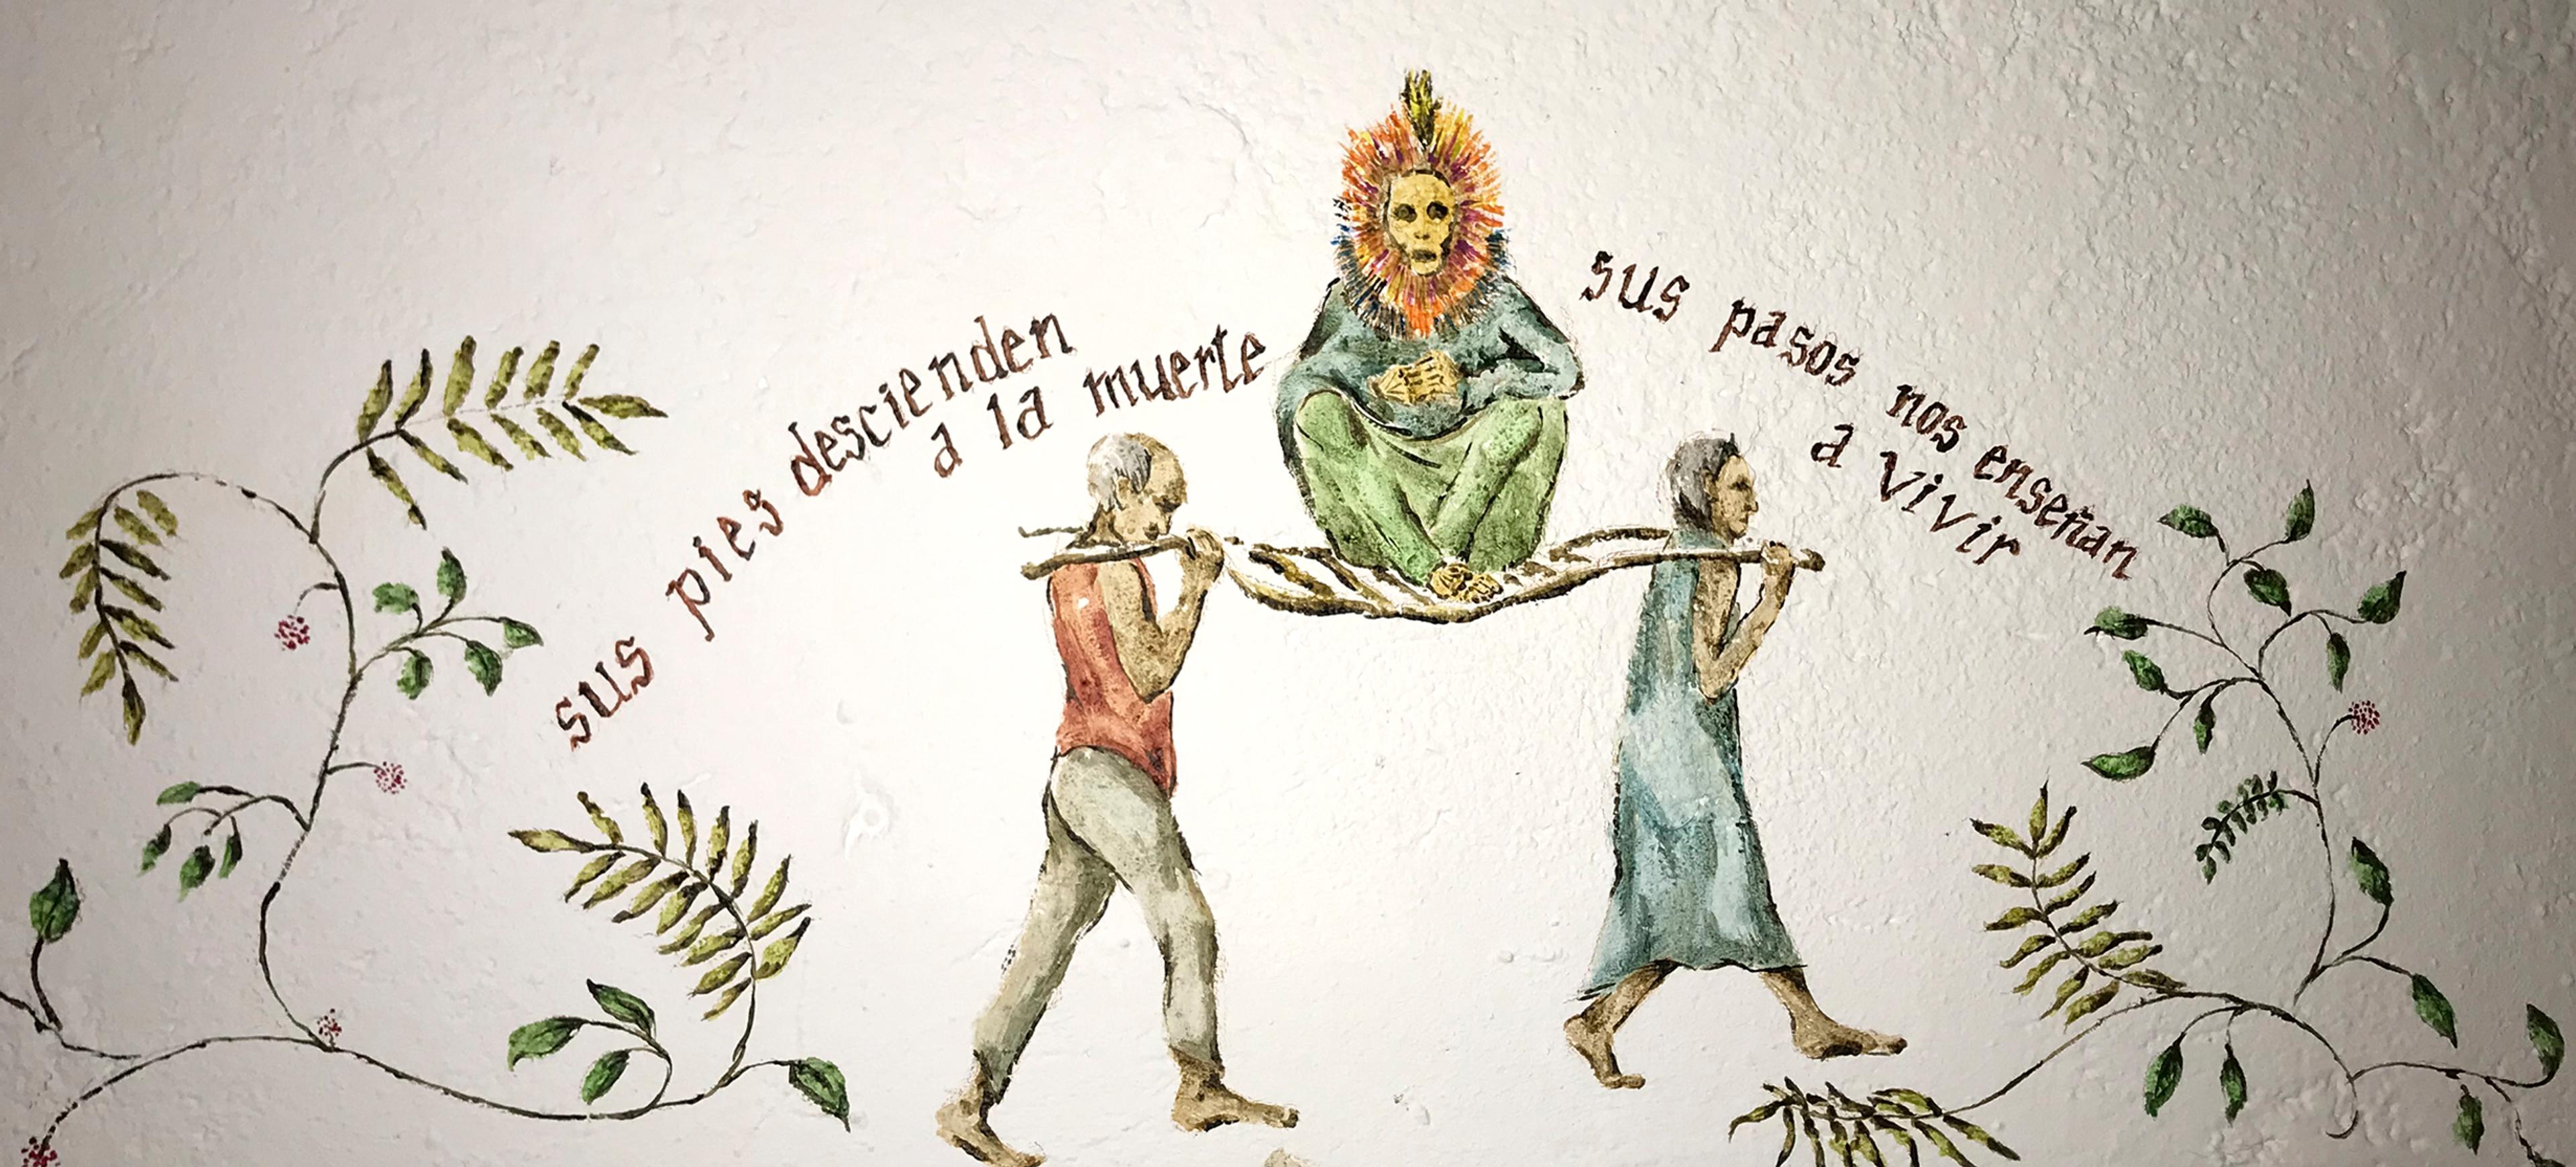 sus pies descienden
a la muerte
sus pasos nos enseñan
a vivir